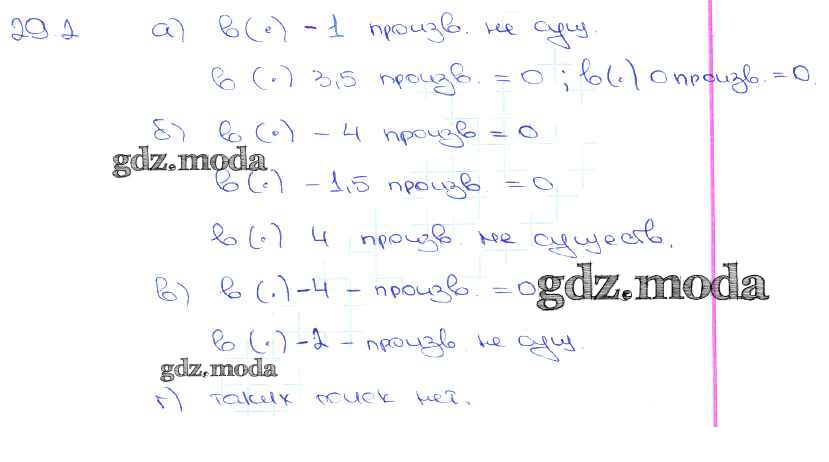 29.2 а) в (·) -1 произв. не сущ.
в (·) 3,5 произв. = 0 ; в (·) 0 произв. = 0.
б) в (·) - 4 произв = 0
gdz.moda
в (·) - 1,5 произв = 0
в (·) 4 произв. не существ.
в) в (·) -4 - произв. = 0
gdz.moda
в (·) -2 - произв. не сущ.
gdz.moda
г) таких точек нет.